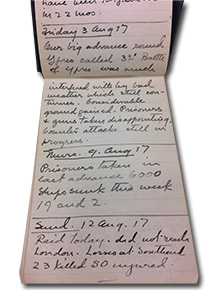 have been
in 22 mos.
Friday 3 Aug 17
Our big advance round
Ypres called 3rd Battle
of Ypres was much
interfered with by bad
weather which still con-
tinues. Considerable
ground gained. Prisoners
& guns taken disappointing.
Counter attacks still in
progress.
Thurs. 9. Aug 17
Prisoners taken in
last advance 6000
Ships sunk this week
19 and 2.
Sund. 12 Aug. 17
Raid Today. did not reach
London. Losses at Southend
23 killed 50 injured.